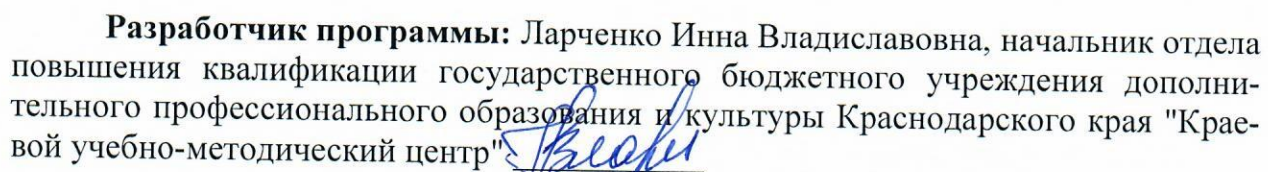 Разработчик программы: Ларченко Инна Владиславовна, начальник отдела
повышения квалификации государственного бюджетного учреждения дополни-
тельного профессионального образования и культуры Краснодарского края "Крае-
вой учебно-методический центр"